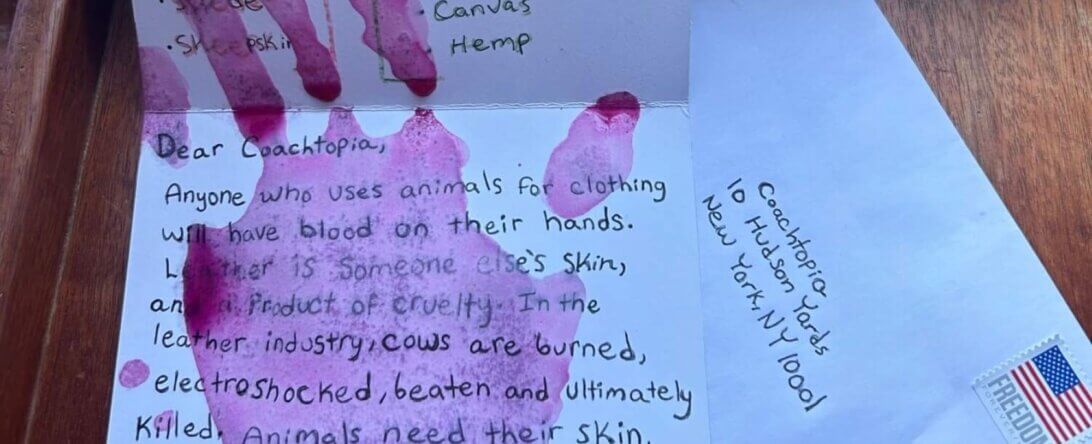 Suede
Canvas
• Sheepskin
Hemp
Dear Coachtopia,
Anyone who uses animals for clothing
will have blood on their hands.
Leather is someone else's skin,
and a product of cruelty. In the
leather industry, cows are burned,
electroshocked, beaten and ultimately
killed. Animals need their skin.
Coachtopia
10 Hudson Yards
New York, NY 10001
FREEDOM
FOREVER